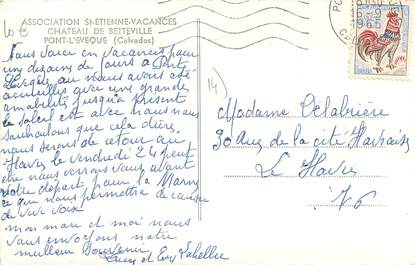 ASSOCIATION St-ETIENNE-VACANCES
CHATEAU DE BETTEVILLE
PONT-L'EVEQUE (Calvados)
Nous sommes en vacances pour
une dizaine de jours à Pont
l'Evêque où nous avons été
accueillis avec une grande
amabilité jusqu'à présent
le soleil est avec nous nous
souhaitons que cela dure,
nous serons de retour au
Havre le vendredi 24 peut
être nous verrons nous avant
votre départ pour la Marne
ce que nous permettra de causer
de vive voix
mon mari et moi nous
vous envoyons notre
meilleur souvenir
et Labellie
14
Madame Delabrière
30 Rue de la cité Havraise
Le Havre
76